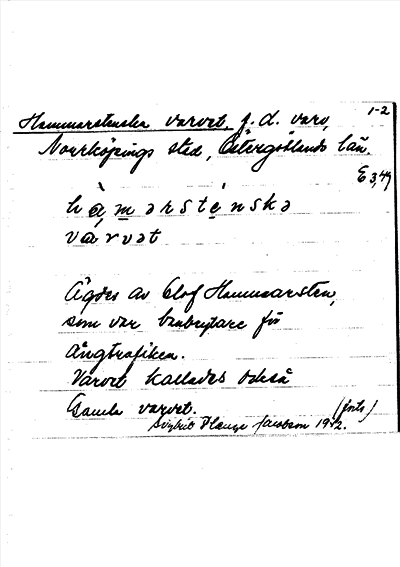 1-2
Hammarstenska varvet, f.d. varv,
Norrköpings stad, Östergötlands län.
E 3,49
hàmərsténskə
várvət
Ägdes av Olof Hammarsten,
som var banbrytare för
ångtrafiken.
Varvet kallades också
Gamla varvet.
(forts)
Jacobson 1932.